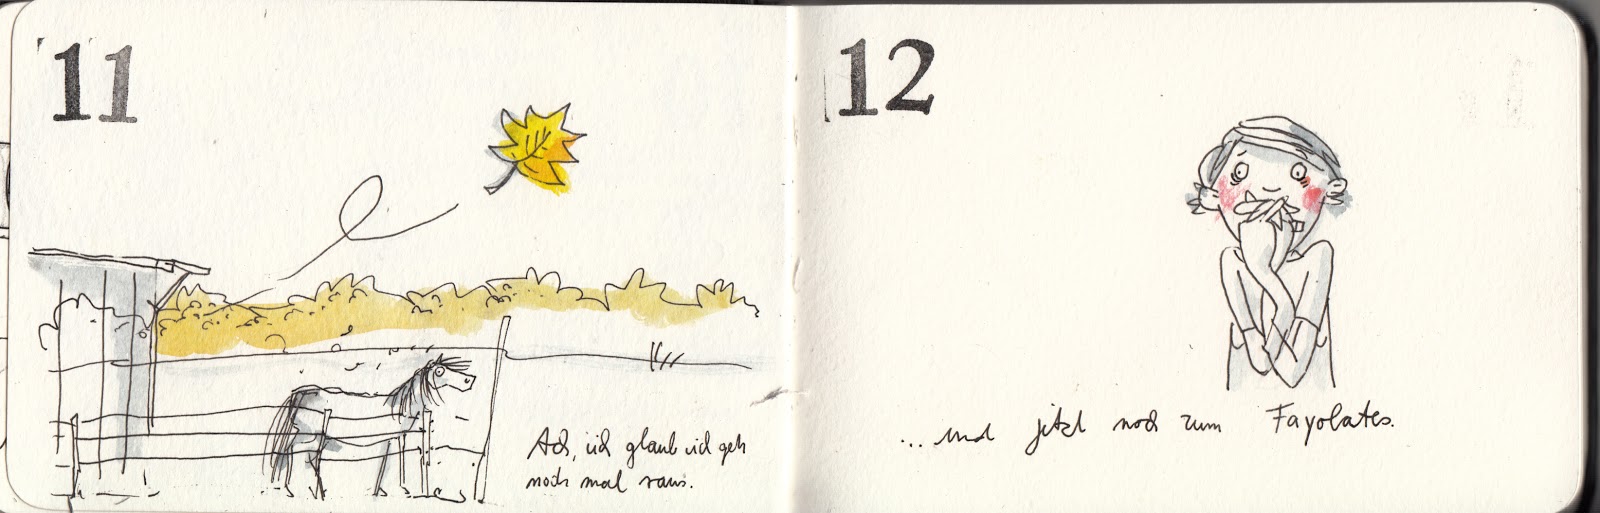 11
Ach, ich glaub ich geh
noch mal raus.
12
... und jetzt noch zum Fayolates.